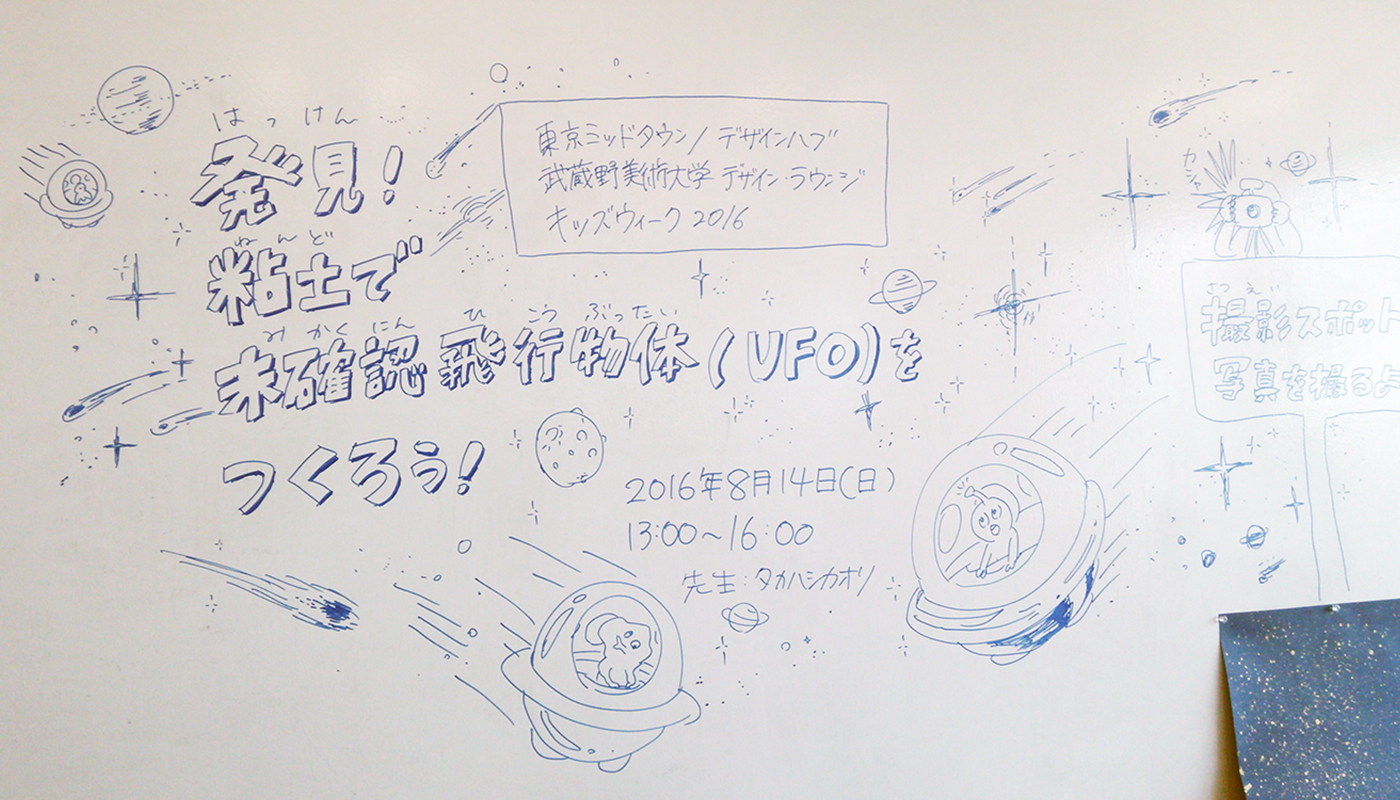 はっけん
発見!
ねんど
粘土で
みかくにん ひこうぶったい
未確認飛行物体(UFO)を
つくろう!
東京ミッドタウン/デザインハブ
武蔵野美術大学 デザイン・ラウンジ
キッズウィーク 2016
2016年8月14日(日)
13:00~16:00
先生:タカハシカオリ
カシャ
さつえい
撮影スポット
写真を撮るよ